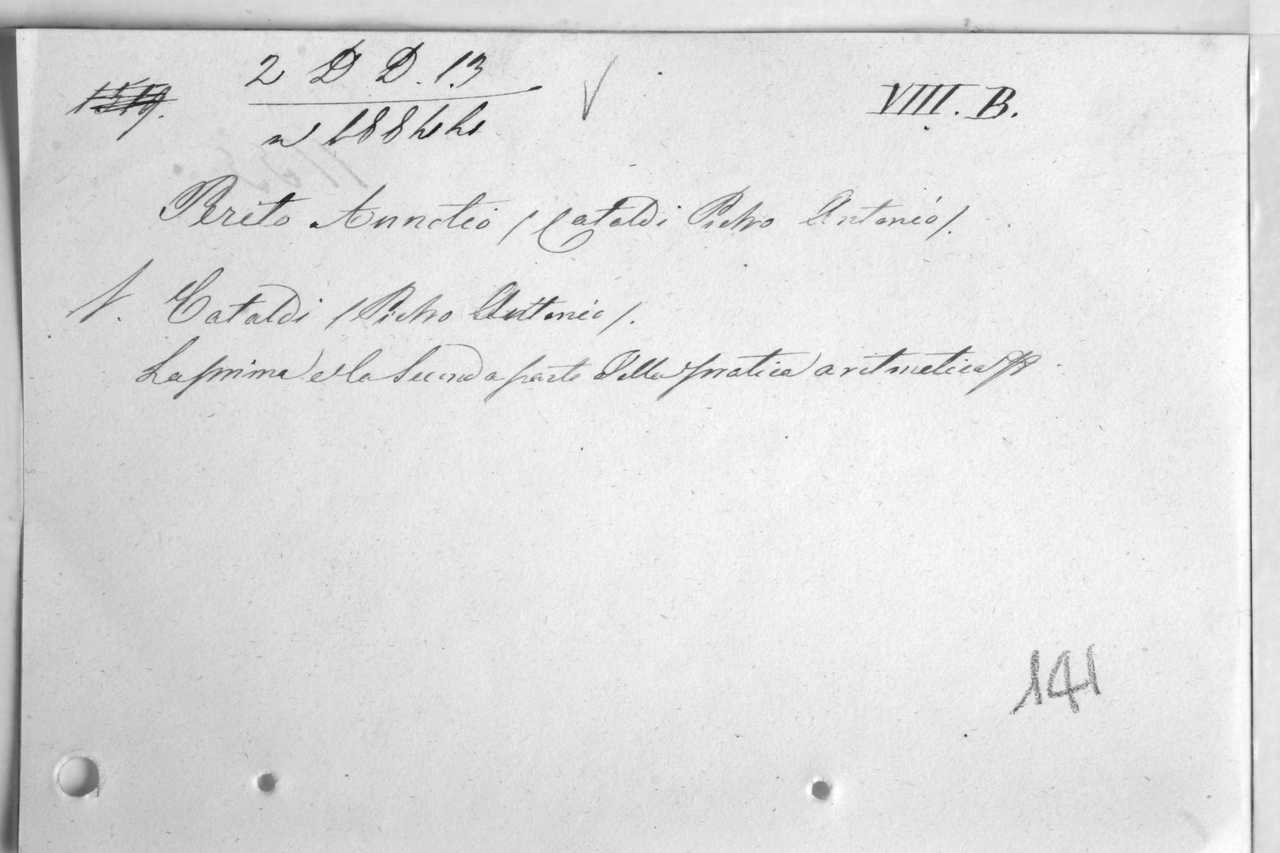 1519.
2 D D. 13
VIII. B.
Perito Annotio /Cataldi Pietro Antonio/.
V. Cataldi /Pietro Antonio/.
La prima e la Seconda parte della pratica aritmetica
141